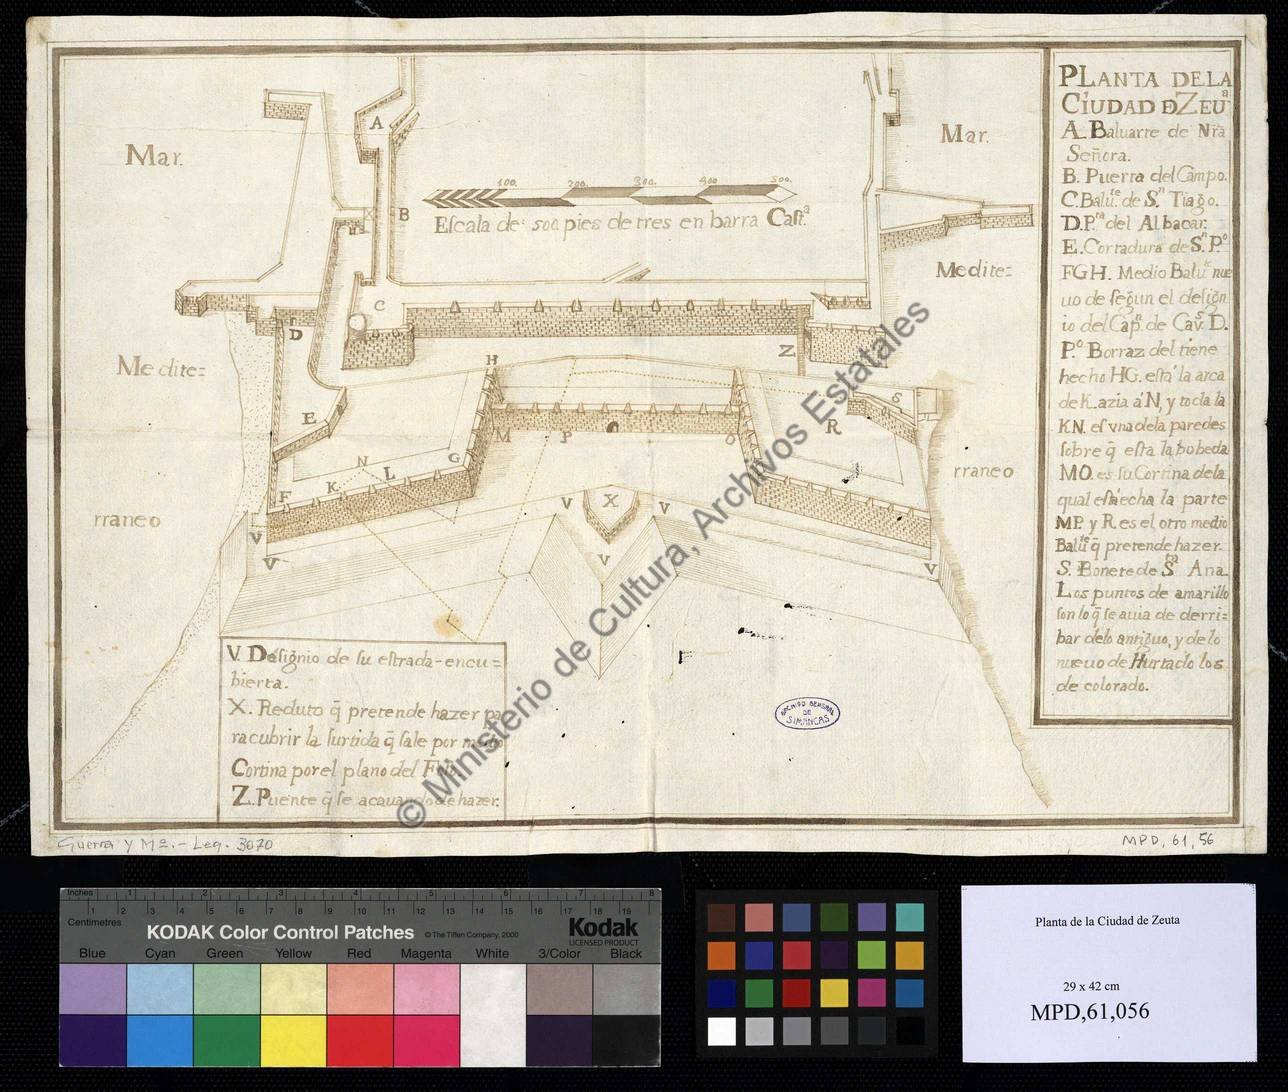 PLANTA DE LA
CIUDAD D ZEUª
A. Baluarte de Nrã
Señora.
B. Puerta del Campo.
C. Balute. de Sn. Tiago.
D. Pta del Albacar.
E. Cortadura de Sn. Po.
FGH. Medio Balute nue
uo de segun el design
io del Capn. de Cavs. D.
Po. Borraz del tiene
hecho HG. està la arca
de K azia á N, y toda la
KN. es vna dela paredes
sobre q̃ esta la bobeda
MO. es su Cortina dela
qual està echa la parte
MP. y R es el otro medio
Balute q̃ pretende hazer.
S. Bonete de Sta Ana
Los puntos de amarillo
son lo q̃ se auia de derri=
bar delo antiguo, y de lo
nueuo de Hurtado los
de colorado.
Mar.
Mar.
A
B
100. 200. 300. 400. 500.
Escala de 500 pies de tres en barra Castª.
Medite=
Medite=
C
D
Z
H
E
S
R
M P O
N
G
L
K
F
X
V V
V
V
V
V
rraneo
rraneo
V. Designio de su estrada-encu=
bierta.
X. Reduto q̃ pretende hazer pa
ra cubrir la surtida q̃ sale por medio
Cortina por el plano del Foso.
Z. Puente q̃ se acauando de hazer.
ARCHIVO GENERAL
DE
SIMANCAS
© Ministerio de Cultura, Archivos Estatales
Guerra y Mª. - Leg. 3070
MPD, 61, 56
Inches 1 2 3 4 5 6 7 8
Centimetres 1 2 3 4 5 6 7 8 9 10 11 12 13 14 15 16 17 18 19
KODAK Color Control Patches
© The Tiffen Company, 2000
Kodak
LICENSED PRODUCT
Blue Cyan Green Yellow Red Magenta White 3/Color Black
Planta de la Ciudad de Zeuta
29 x 42 cm
MPD,61,056